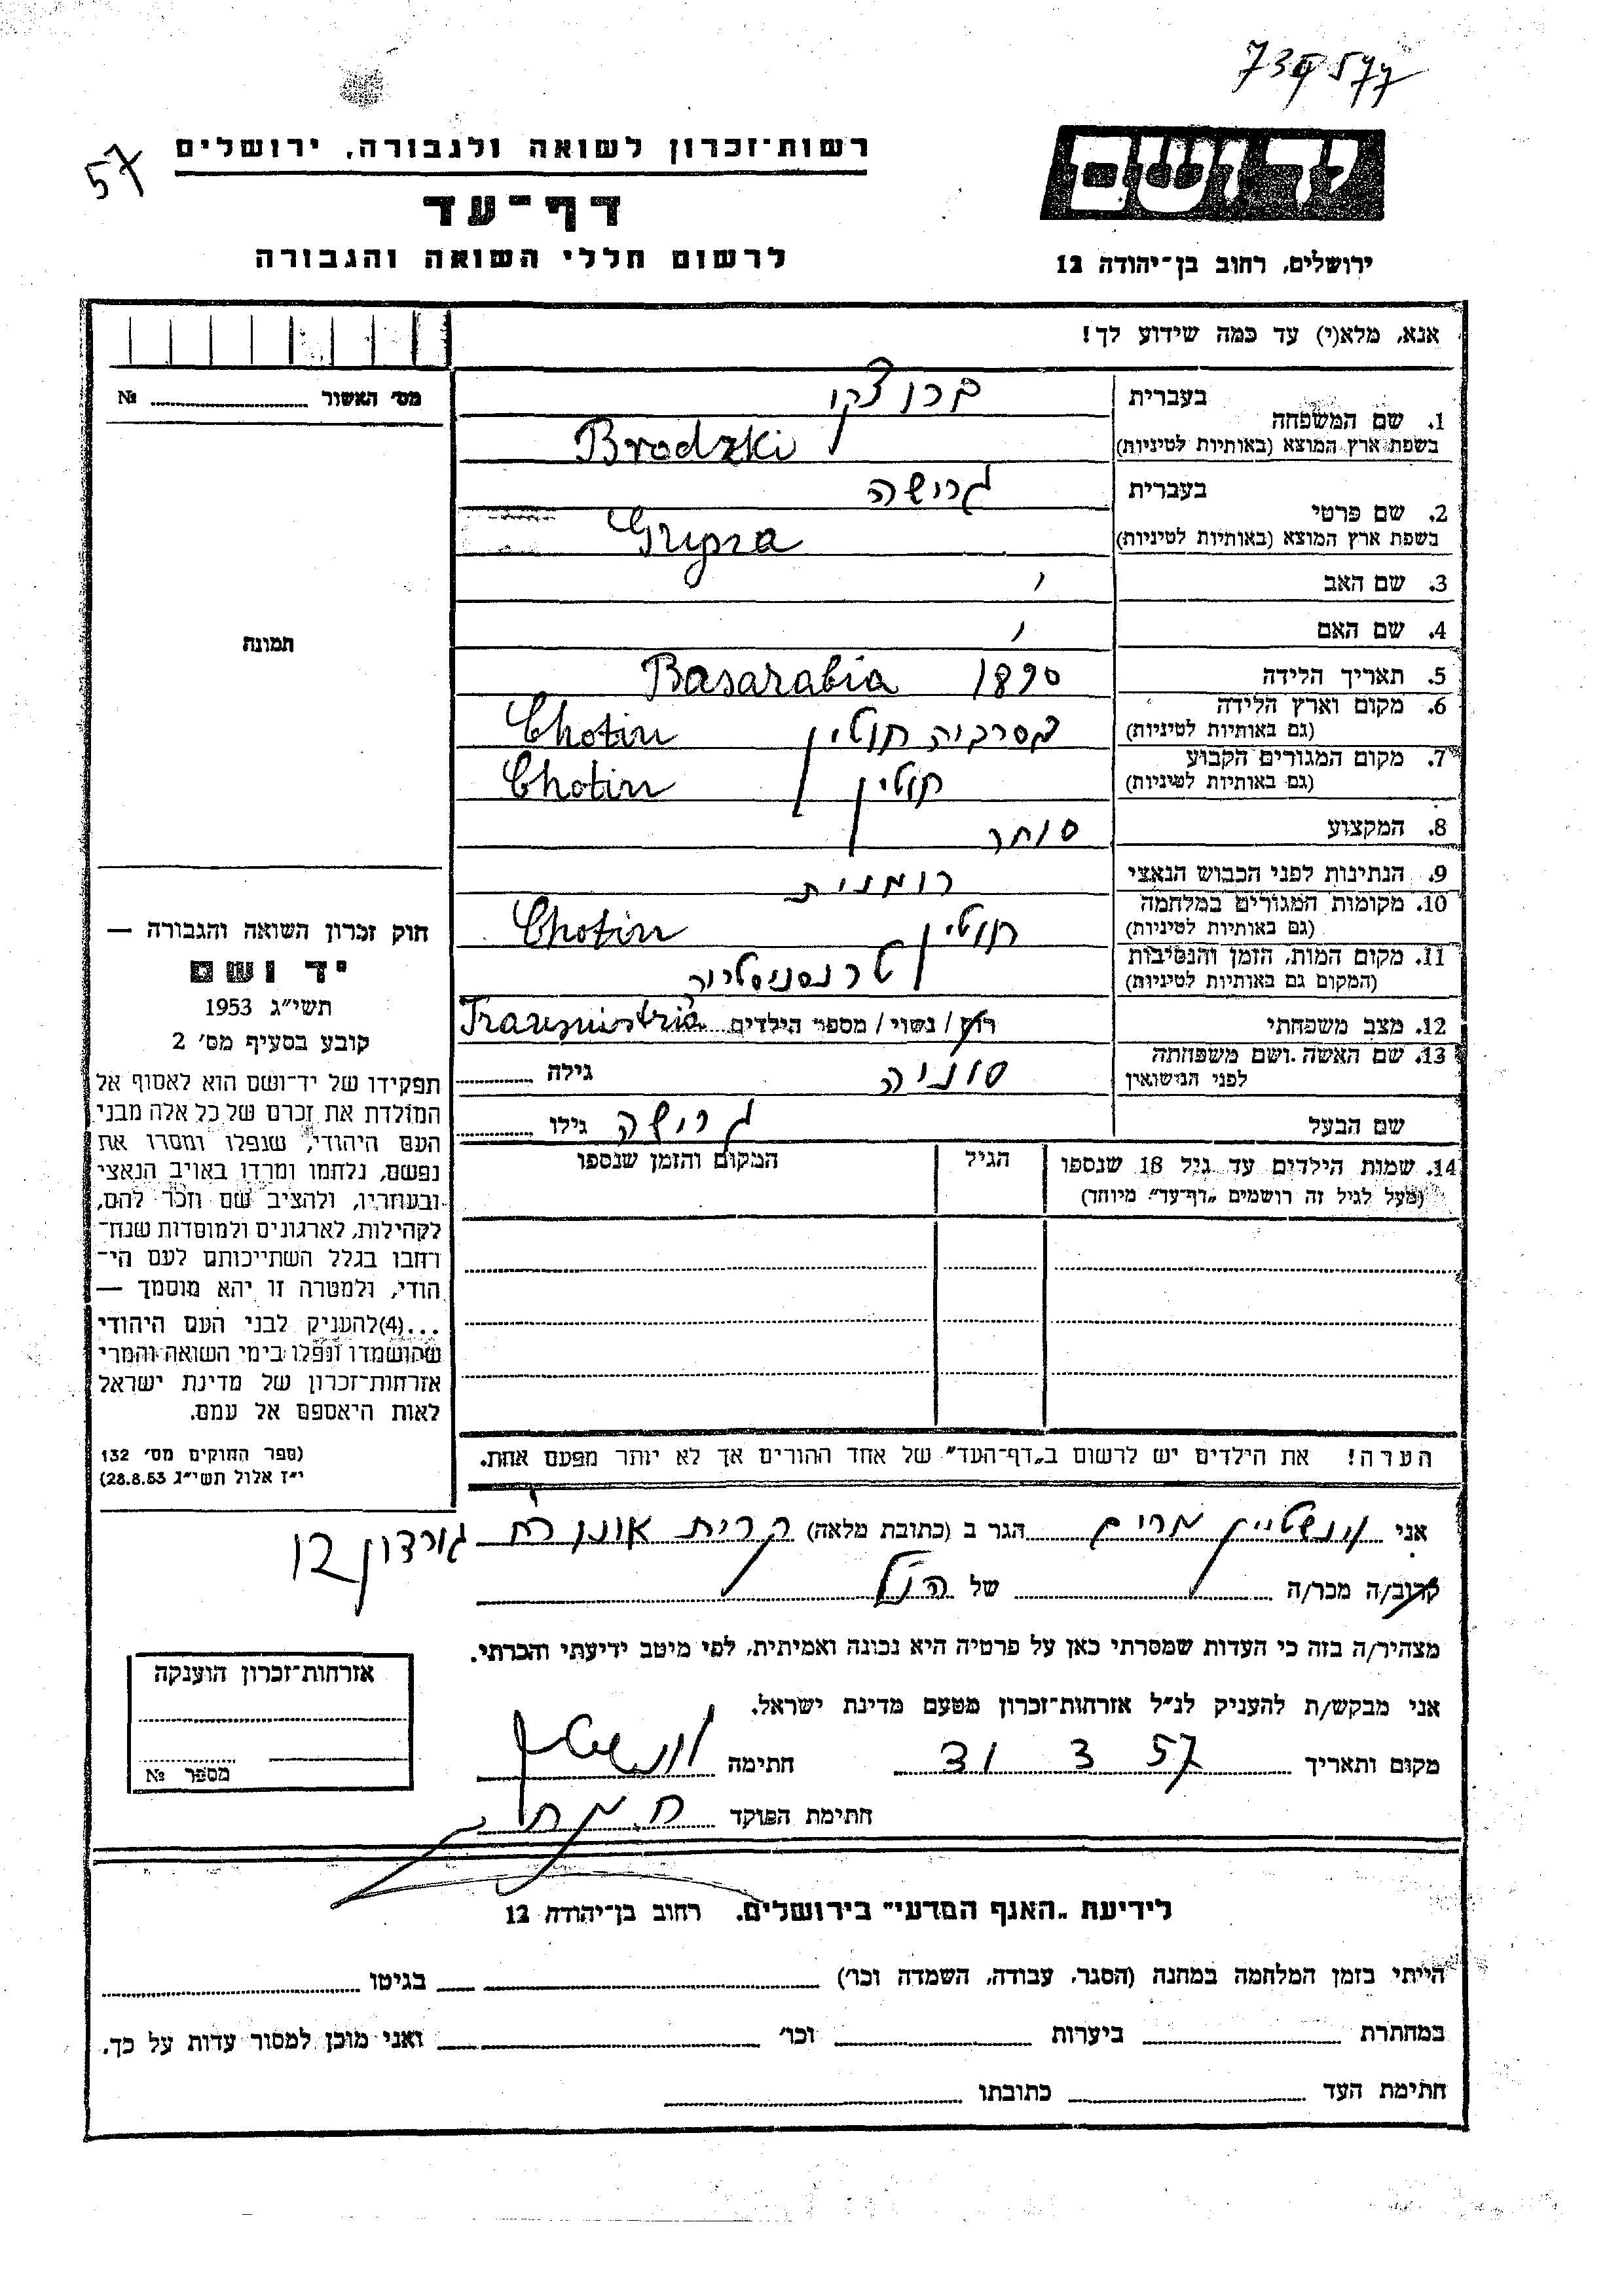 739577
57
רשות־זכרון לשואה ולגבורה, ירושלים
דף־עד
לרשום חללי השואה והגבורה
יד ושם
ירושלים, רחוב בן־יהודה 12
אנא, מלא(י) עד כמה שידוע לך!
מס׳ האשור № 
תמונה
1. שם המשפחה
בעברית ברודצקי
בשפת ארץ המוצא (באותיות לטיניות) Brodzki
2. שם פרטי
בעברית גרישה
בשפת ארץ המוצא (באותיות לטיניות)
3. שם האב
4. שם האם
5. תאריך הלידה 1890 Basarabia
6. מקום וארץ הלידה
(גם באותיות לטיניות) בסרביה חוטין Chotin
7. מקום המגורים הקבוע
(גם באותיות לטיניות) חוטין Chotin
8. המקצוע סוחר
9. הנתינות לפני הכבוש הנאצי רומנית
10. מקומות המגורים במלחמה
(גם באותיות לטיניות) חוטין Chotin
11. מקום המות, הזמן והנסיבות
(המקום גם באותיות לטיניות) טרנסניסטריה
12. מצב משפחתי רוק / נשוי / מספר הילדים Transnistria
13. שם האשה ושם משפחתה
לפני הנישואין סוניה גילה
שם הבעל גרישה גילו
14. שמות הילדים עד גיל 18 שנספו
(מעל לגיל זה רושמים „דף־עד״ מיוחד)
הגיל
המקום והזמן שנספו
הערה! את הילדים יש לרשום ב„דף־העד״ של אחד ההורים אך לא יותר מפעם אחת.
חוק זכרון השואה והגבורה —
יד ושם
תשי״ג 1953
קובע בסעיף מס׳ 2
תפקידו של יד־ושם הוא לאסוף אל
המולדת את זכרם של כל אלה מבני
העם היהודי, שנפלו ומסרו את
נפשם, נלחמו ומרדו באויב הנאצי
ובעוזריו, ולהציב שם וזכר להם,
לקהילות, לארגונים ולמוסדות שנח־
רחבו בגלל השתייכותם לעם הי־
הודי, ולמטרה זו יהא מוסמך —
...(4)להעניק לבני העם היהודי
שהושמדו ונפלו בימי השואה והמרי
אזרחות־זכרון של מדינת ישראל
לאות היאספם אל עמם.
(ספר החוקים מס׳ 132
י״ז אלול תשי״ג 28.8.53)
אני וינשטיין מרים הגר ב (כתובת מלאה) קרית אונו רח גורדון 12
קרוב/ה מכר/ה של הנ״ל
מצהיר/ה בזה כי העדות שמסרתי כאן על פרטיה היא נכונה ואמיתית, לפי מיטב ידיעתי והכרתי.
אני מבקש/ת להעניק לנ״ל אזרחות־זכרון מטעם מדינת ישראל.
מקום ותאריך 31 3 57 חתימה
חתימת הפוקד
אזרחות־זכרון הוענקה
מספר №
לידיעת „האגף המדעי״ בירושלים. רחוב בן־יהודה 12
הייתי בזמן המלחמה במחנה (הסגר, עבודה, השמדה וכו׳) בגיטו
במחתרת ביערות וכו׳ ואני מוכן למסור עדות על כך.
חתימת העד כתובתו